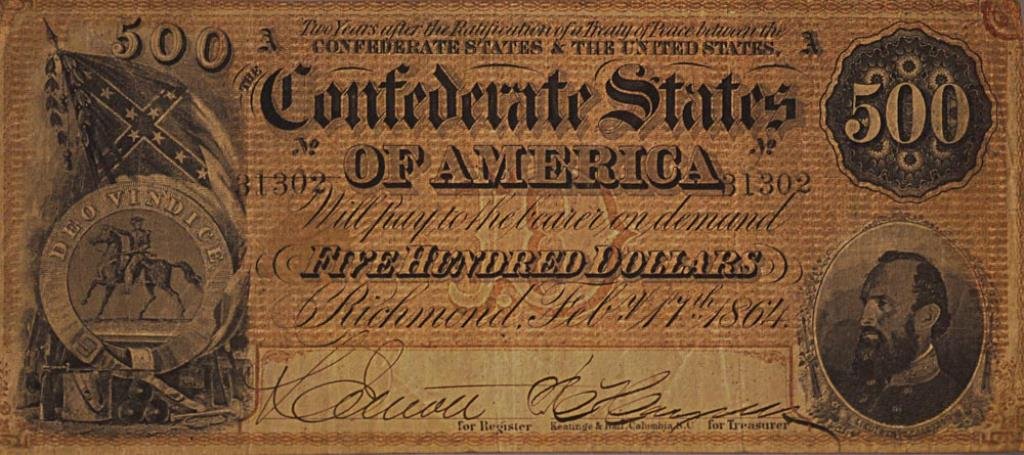 Two Years after the Ratification of a Treaty of Peace between the
CONFEDERATE STATES & THE UNITED STATES.
500 A A
THE
Confederate States
500
No No
OF AMERICA
31302 31302
Will pay to the bearer on demand
DEO VINDICE
FIVE HUNDRED DOLLARS
Richmond, Feby. 17th 1864.
for Register Keatinge & Ball, Columbia, S.C. for Treasurer